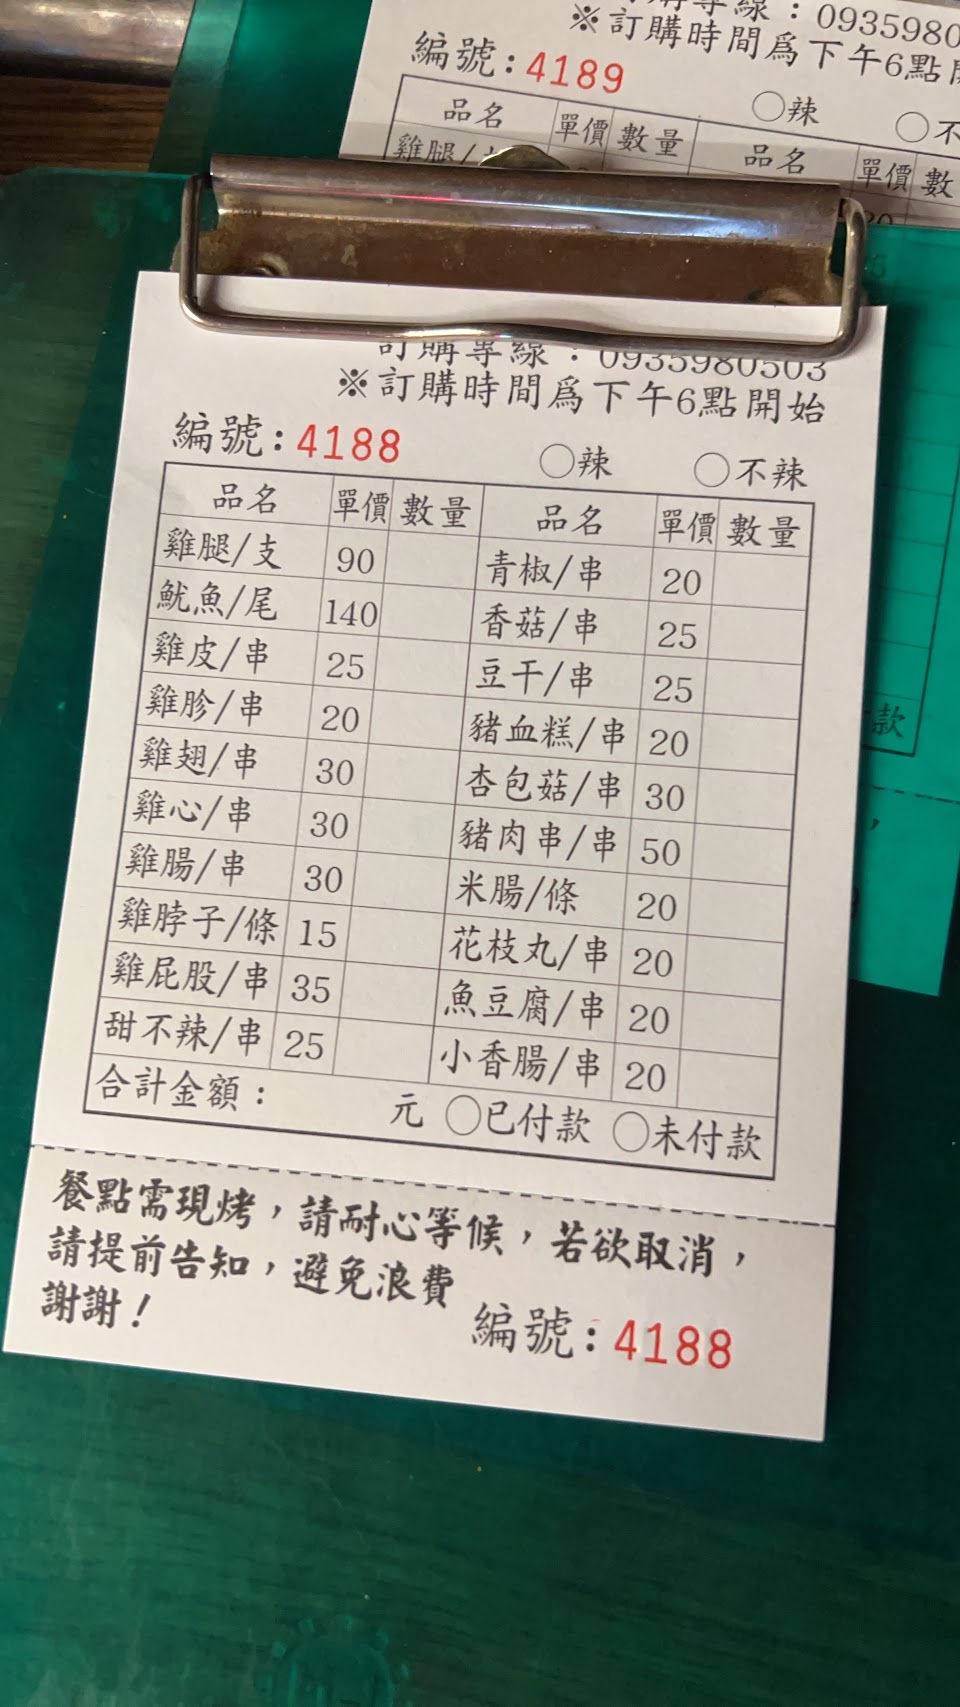 訂購專線：0935980
※訂購時間爲下午6點開
編號:4189
○辣 ○不
品名 單價 數量 品名 單價 數
雞腿/
訂購專線：0935980503
※訂購時間爲下午6點開始
編號:4188 ○辣 ○不辣
品名 單價 數量 品名 單價 數量
雞腿/支 90 青椒/串 20
魷魚/尾 140 香菇/串 25
雞皮/串 25 豆干/串 25
雞胗/串 20 豬血糕/串 20
雞翅/串 30 杏包菇/串 30
雞心/串 30 豬肉串/串 50
雞腸/串 30 米腸/條 20
雞脖子/條 15 花枝丸/串 20
雞屁股/串 35 魚豆腐/串 20
甜不辣/串 25 小香腸/串 20
合計金額： 元 ○已付款 ○未付款
餐點需現烤，請耐心等候，若欲取消，
請提前告知，避免浪費
謝謝！
編號:4188
款